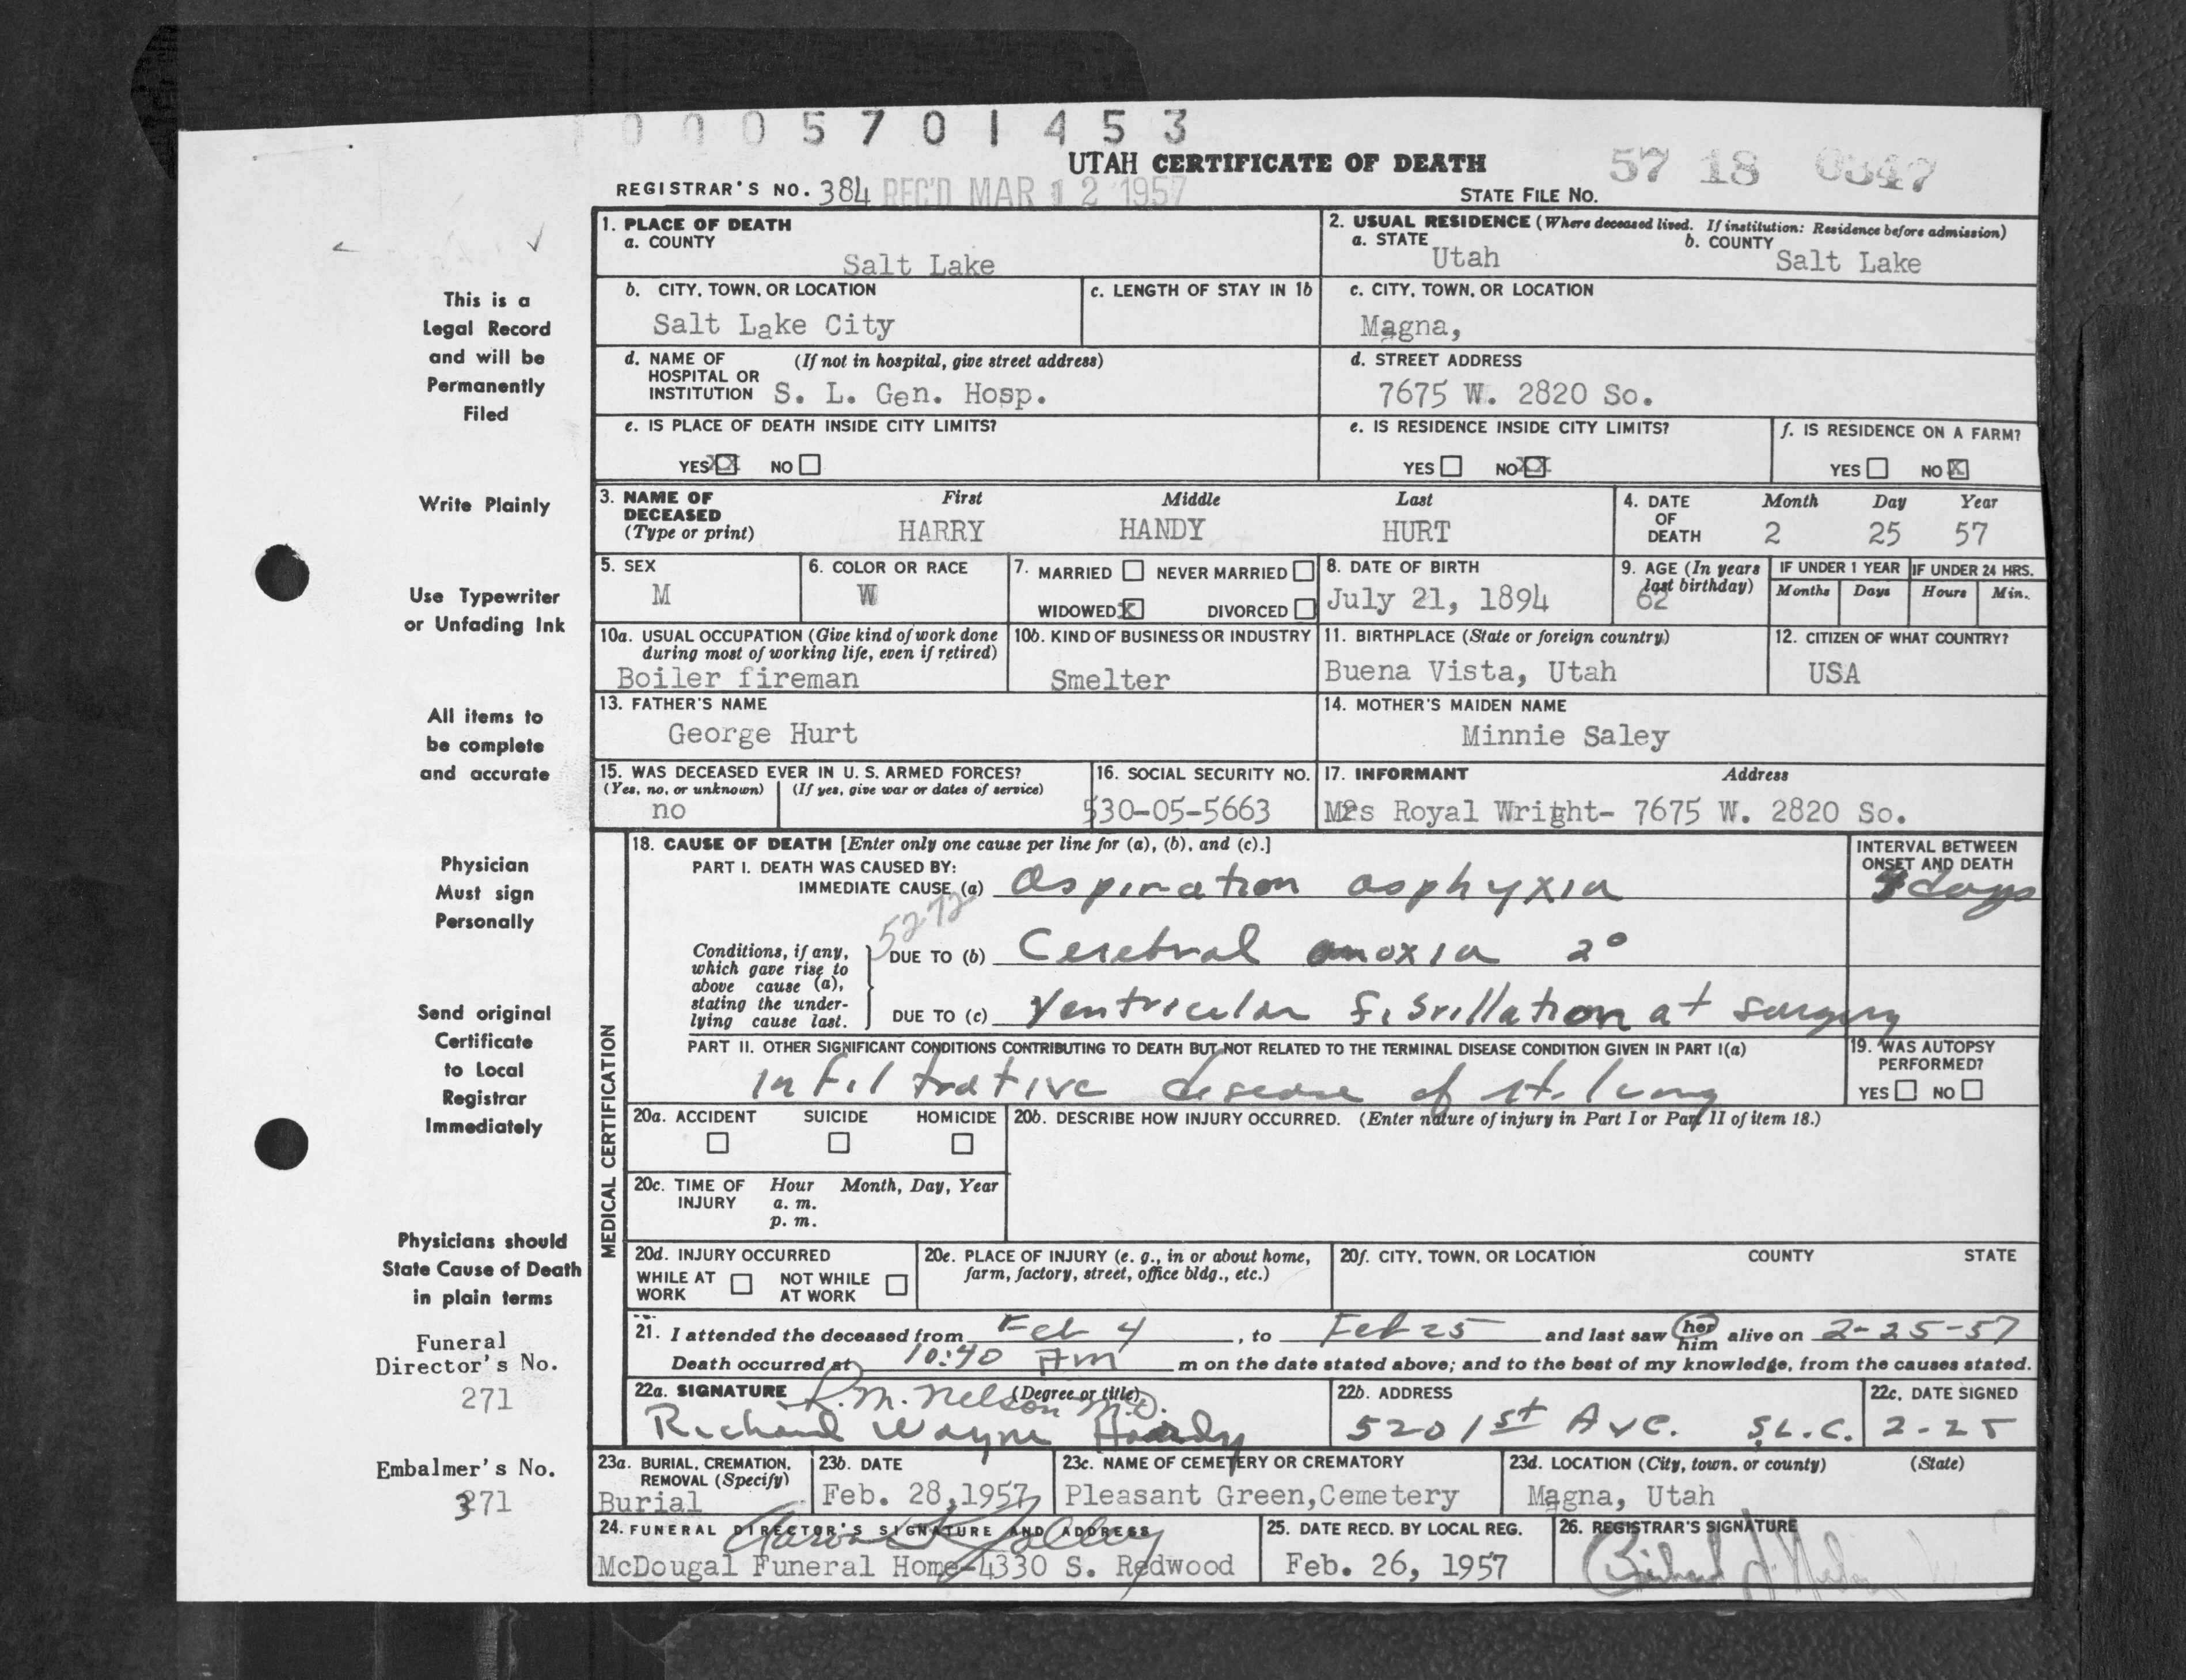 0005701453
UTAH CERTIFICATE OF DEATH
57 18 0347
REGISTRAR'S NO. 384 REC'D MAR 12 1957
STATE FILE NO.
1. PLACE OF DEATH
a. COUNTY
Salt Lake
2. USUAL RESIDENCE (Where deceased lived. If institution: Residence before admission)
a. STATE Utah b. COUNTY Salt Lake
b. CITY, TOWN, OR LOCATION
Salt Lake City
c. LENGTH OF STAY IN 1b
c. CITY, TOWN, OR LOCATION
Magna,
d. NAME OF HOSPITAL OR INSTITUTION (If not in hospital, give street address)
S. L. Gen. Hosp.
d. STREET ADDRESS
7675 W. 2820 So.
e. IS PLACE OF DEATH INSIDE CITY LIMITS?
YES XX NO
e. IS RESIDENCE INSIDE CITY LIMITS?
YES NO XX
f. IS RESIDENCE ON A FARM?
YES NO X
3. NAME OF DECEASED (Type or print)
First Middle Last
HARRY HANDY HURT
4. DATE OF DEATH Month Day Year
2 25 57
5. SEX
M
6. COLOR OR RACE
W
7. MARRIED NEVER MARRIED
WIDOWED X DIVORCED
8. DATE OF BIRTH
July 21, 1894
9. AGE (In years last birthday)
62
IF UNDER 1 YEAR IF UNDER 24 HRS.
Months Days Hours Min.
10a. USUAL OCCUPATION (Give kind of work done during most of working life, even if retired)
Boiler fireman
10b. KIND OF BUSINESS OR INDUSTRY
Smelter
11. BIRTHPLACE (State or foreign country)
Buena Vista, Utah
12. CITIZEN OF WHAT COUNTRY?
USA
13. FATHER'S NAME
George Hurt
14. MOTHER'S MAIDEN NAME
Minnie Saley
15. WAS DECEASED EVER IN U. S. ARMED FORCES?
(Yes, no, or unknown) (If yes, give war or dates of service)
no
16. SOCIAL SECURITY NO.
530-05-5663
17. INFORMANT Address
Mrs Royal Wright- 7675 W. 2820 So.
MEDICAL CERTIFICATION
18. CAUSE OF DEATH [Enter only one cause per line for (a), (b), and (c).]
PART I. DEATH WAS CAUSED BY:
IMMEDIATE CAUSE (a) Aspiration asphyxia
INTERVAL BETWEEN ONSET AND DEATH
days
Conditions, if any, which gave rise to above cause (a), stating the underlying cause last.
DUE TO (b) Cerebral anoxia 2°
DUE TO (c) Ventricular fibrillation at surgery
PART II. OTHER SIGNIFICANT CONDITIONS CONTRIBUTING TO DEATH BUT NOT RELATED TO THE TERMINAL DISEASE CONDITION GIVEN IN PART I(a)
Infiltrative disease of rt. lung
19. WAS AUTOPSY PERFORMED?
YES NO
20a. ACCIDENT SUICIDE HOMICIDE
20b. DESCRIBE HOW INJURY OCCURRED. (Enter nature of injury in Part I or Part II of item 18.)
20c. TIME OF INJURY Hour Month, Day, Year
a. m.
p. m.
20d. INJURY OCCURRED
WHILE AT WORK NOT WHILE AT WORK
20e. PLACE OF INJURY (e. g., in or about home, farm, factory, street, office bldg., etc.)
20f. CITY, TOWN, OR LOCATION COUNTY STATE
21. I attended the deceased from Feb 4, to Feb 25 and last saw her him alive on 2-25-57
Death occurred at 10:40 AM m on the date stated above; and to the best of my knowledge, from the causes stated.
22a. SIGNATURE (Degree or title)
R. M. Nelson M.D.
Richard Wayne
22b. ADDRESS
520 1st Ave. S.L.C.
22c. DATE SIGNED
2-25
23a. BURIAL, CREMATION, REMOVAL (Specify)
Burial
23b. DATE
Feb. 28, 1957
23c. NAME OF CEMETERY OR CREMATORY
Pleasant Green,Cemetery
23d. LOCATION (City, town, or county) (State)
Magna, Utah
24. FUNERAL DIRECTOR'S SIGNATURE AND ADDRESS
McDougal Funeral Home-4330 S. Redwood
25. DATE RECD. BY LOCAL REG.
Feb. 26, 1957
26. REGISTRAR'S SIGNATURE
This is a
Legal Record
and will be
Permanently
Filed
Write Plainly
Use Typewriter
or Unfading Ink
All items to
be complete
and accurate
Physician
Must sign
Personally
Send original
Certificate
to Local
Registrar
Immediately
Physicians should
State Cause of Death
in plain terms
Funeral
Director's No.
271
Embalmer's No.
371